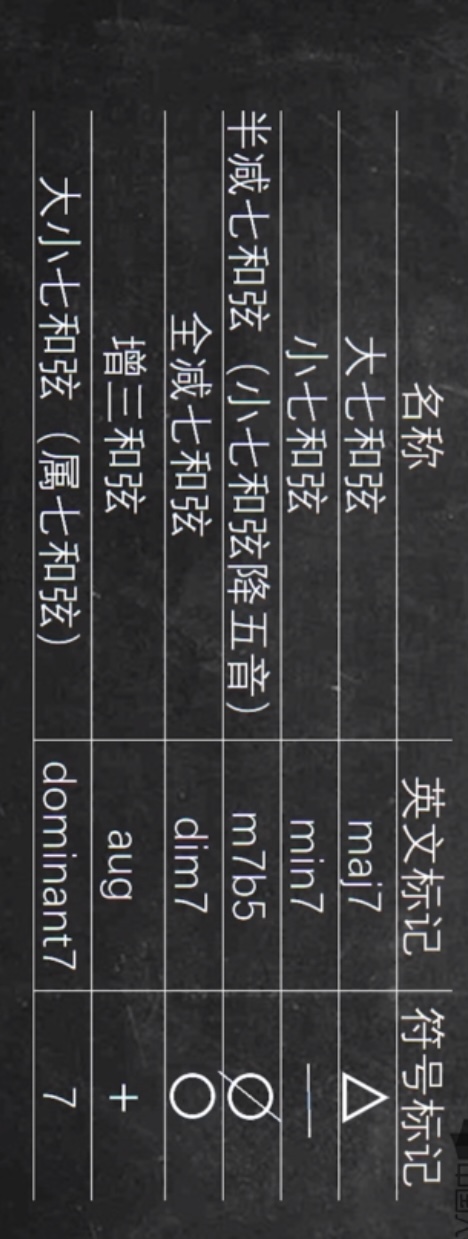 名称 英文标记 符号标记
大七和弦 maj7 △
小七和弦 min7 —
半减七和弦（小七和弦降五音） m7b5 Ø
全减七和弦 dim7 ○
增三和弦 aug +
大小七和弦（属七和弦） dominant7 7